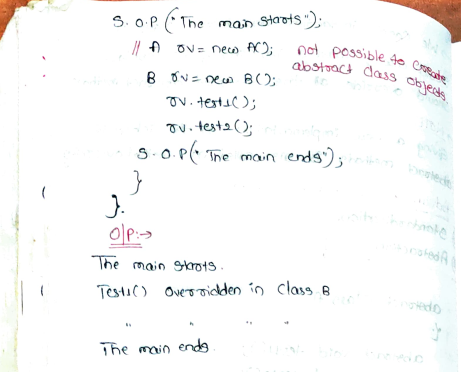 S.O.P("The main starts");
// A rv = new A(); not possible to create
abstract class objects.
B rv = new B();
rv.test1();
rv.test2();
S.O.P("The main ends");
}
}.
O/P:→
The main starts.
Test1() Overridden in Class B
" " " "
The main ends.